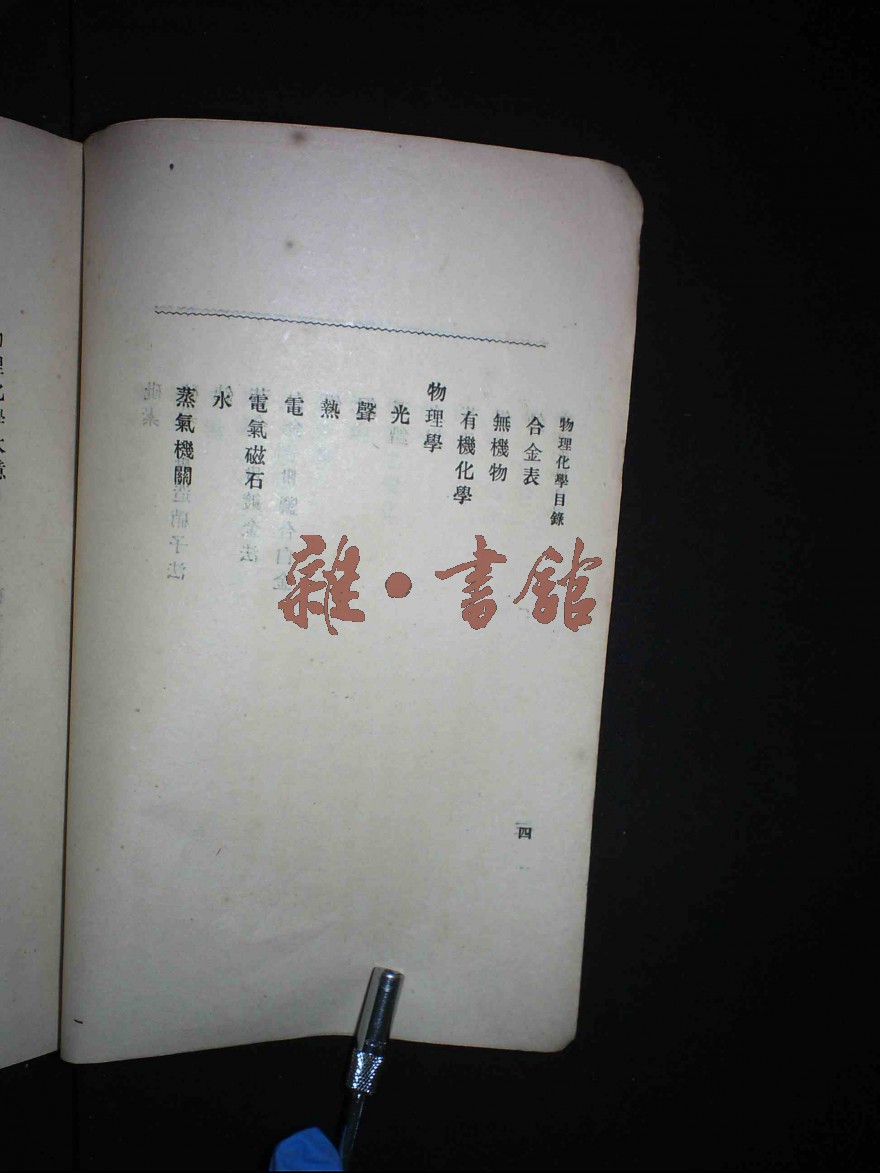 物理化學目錄
合金表
無機物
有機化學
物理學
光
聲
熱
電
電氣磁石
水
蒸氣機關
四
雜·書館